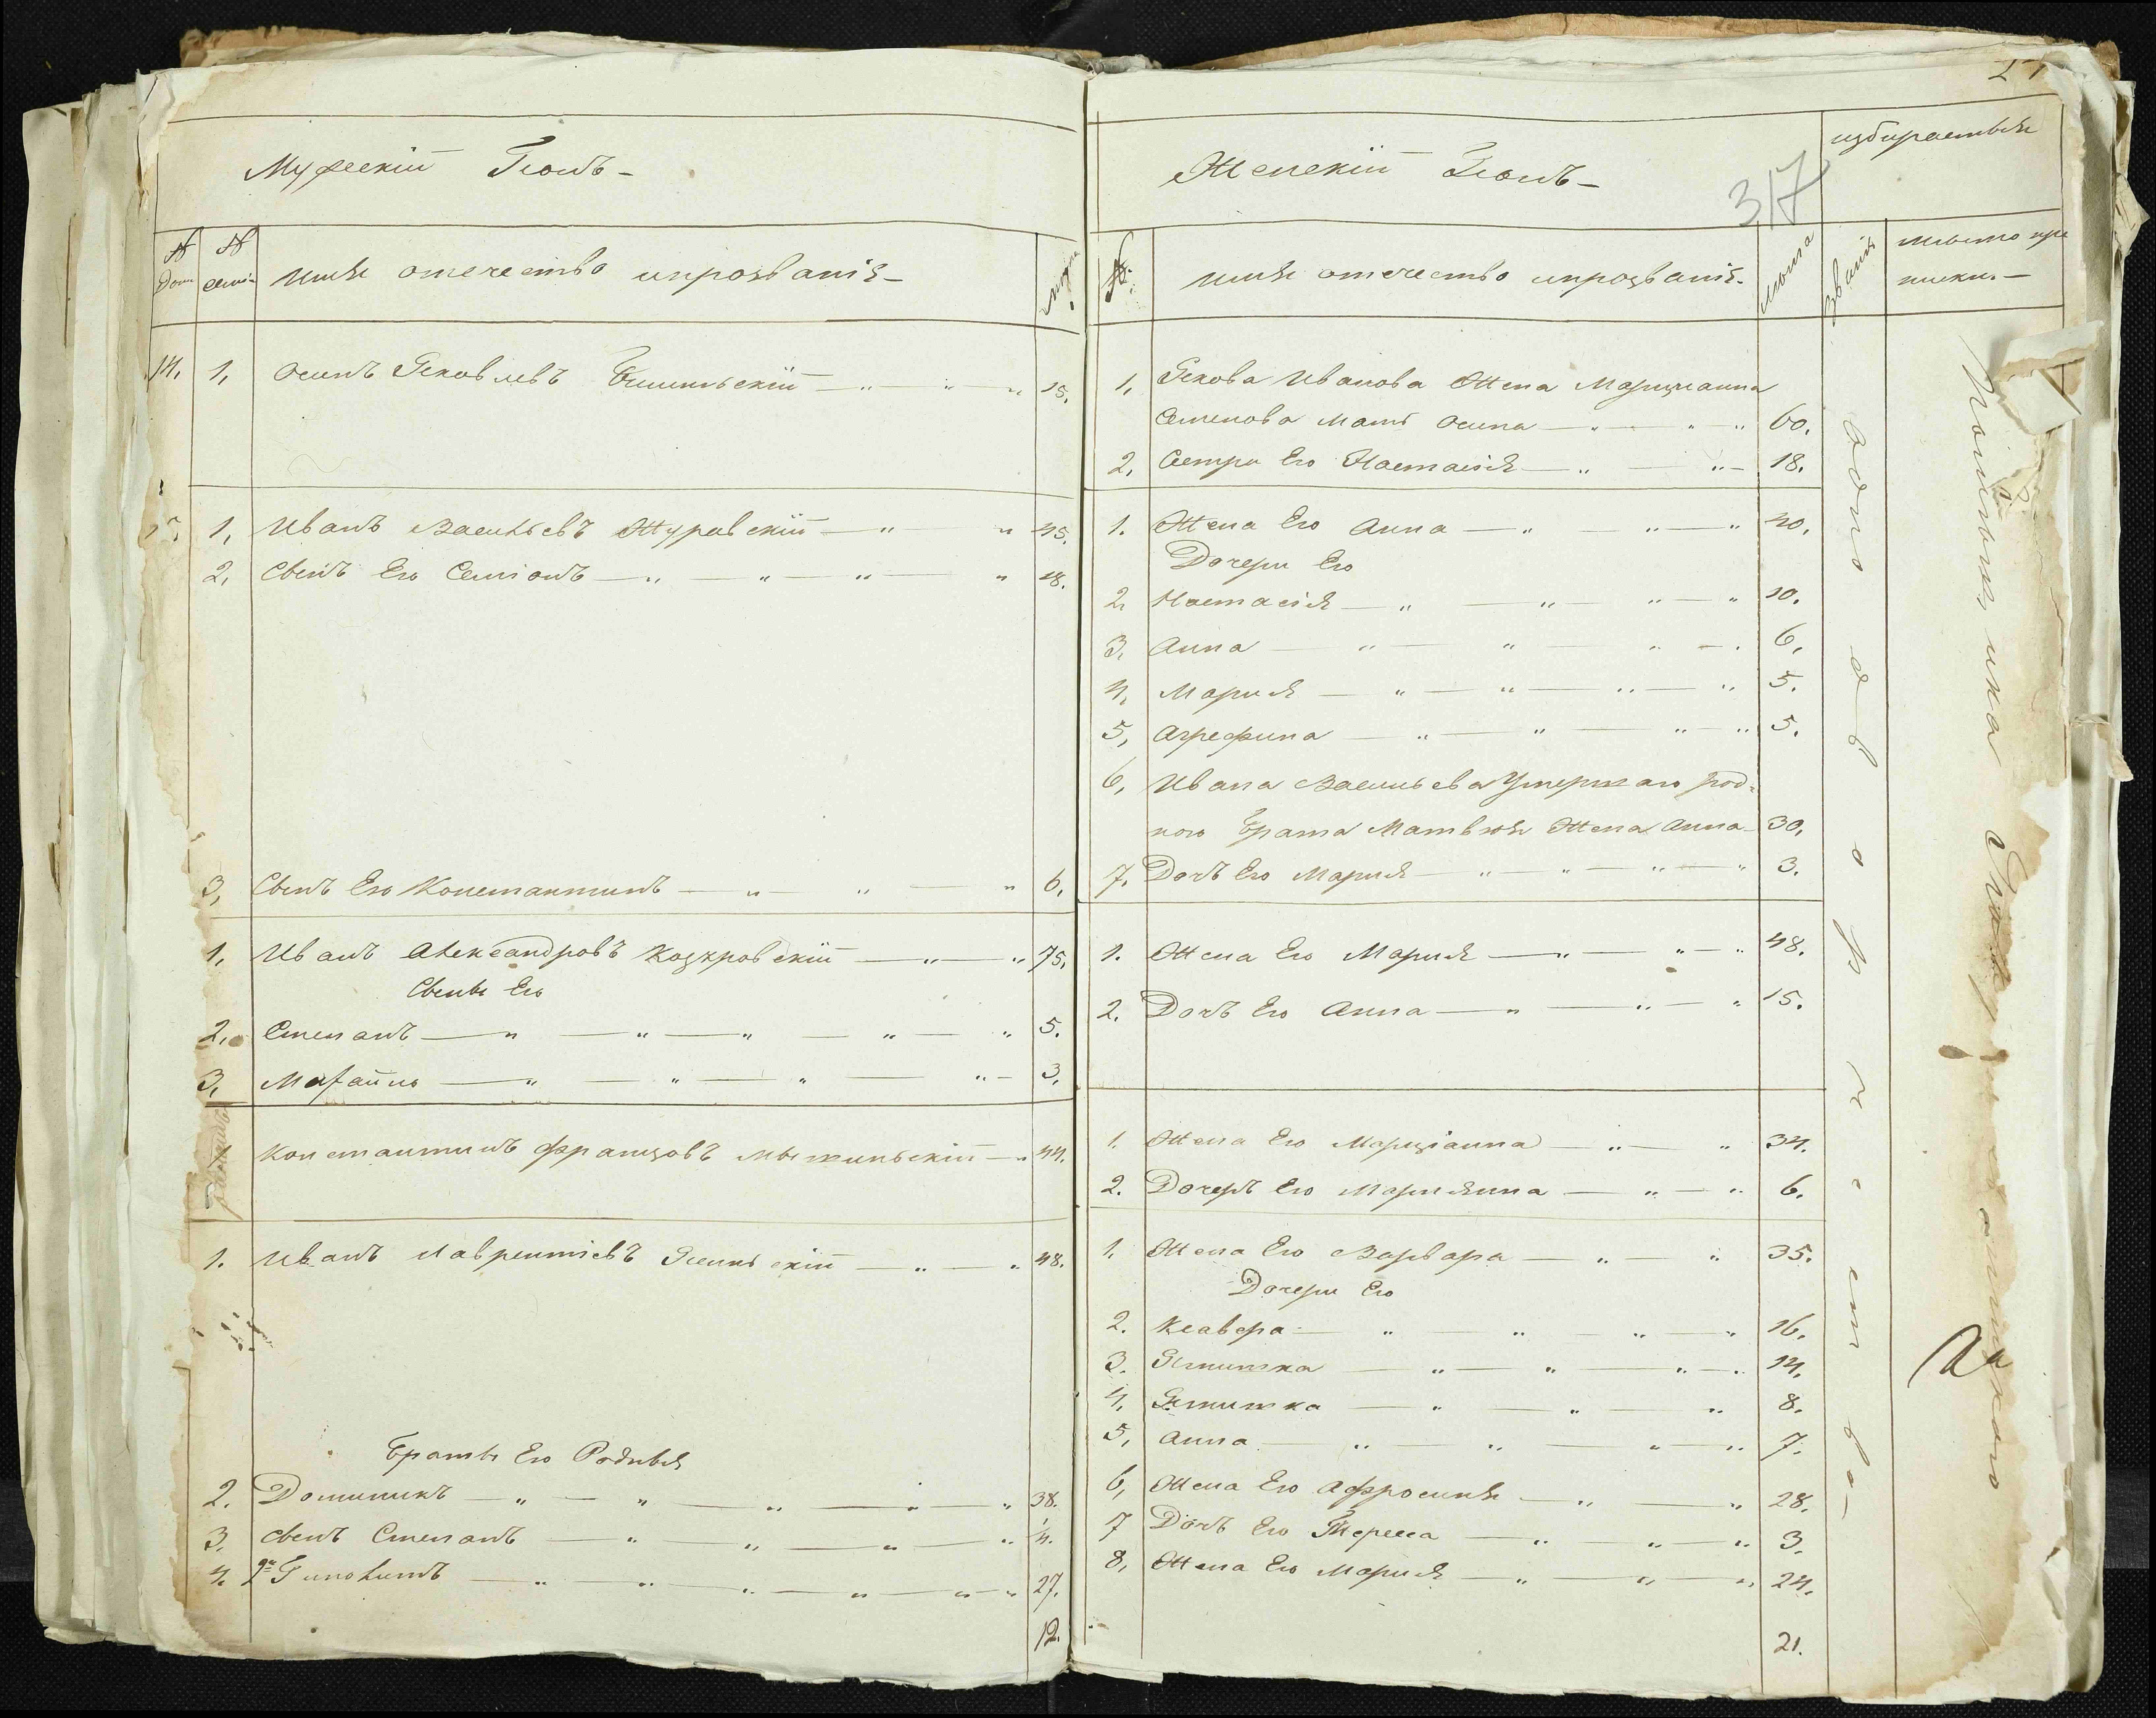 Мужеский Полъ -
№ дом
№ семi-
имя отечество ипрозваніе -
14. 1. Осипъ Яковлевъ - " " " 15.
1. Иванъ Васильевъ Журавскій - " " 45.
2. Сынъ Его Семіонъ - " - " - " " 18.
3. Сынъ Его Константинъ - " " " 6.
1. Иванъ Александровъ Козкровскій - " " 75.
Сыны Его
2. Степанъ - " - " - " - " - " 5.
3. - " - " - " - " - 3.
Константинъ Францовъ - " 44.
1. Иванъ Лаврентіевъ Ясинскій - " - " 48.
Браты Его Родныя
2. Доминикъ - " - " - " - " - " 38.
3. сынъ Степанъ - " - " - " - " 4.
4. - " - " - " - " - " - " 27.
12.
Женскій Полъ -
317
избираетъся
№
имя отечество ипрозваніе.
звания
место про
писки. -
1. Якова Иванова Жена Марцианна
Семенова Мать Осипа - " - " " 60.
2. Сестра Его Настасія - " - " - 18.
1. Жена Его Анна - " - " - " 40.
Дочери Его
2. Настасія - " - " - " - " 10.
3. Анна - " - " - " - . 6.
4. Мария - " - " - " - " 5.
5. Агрефина - " - " - " - " 5.
6. Ивана Васильева Умершаго род-
ного брата Матвея Жена Анна - 30.
7. Дочъ Его Мария - " - " - " - " 3.
1. Жена Его Мария - " - " - " 48.
2. Дочъ Его Анна - " - " - " 15.
1. Жена Его Марціанна - " - " 34.
2. Дочеръ Его Мариянна - " - " 6.
1. Жена Его Варвара - " - " 35.
Дочери Его
2. Ксавера - " - " - " - " 16.
3. - " - " - " - . 14.
4. - " - " - " 8.
5. Анна - " - " - " - " 7.
6. Жена Его Афросиня - " - " 28.
7 Дочъ Его Тереса - " - " - " 3.
8. Жена Его Мария - " - " - " 24.
21.
однодворчество -